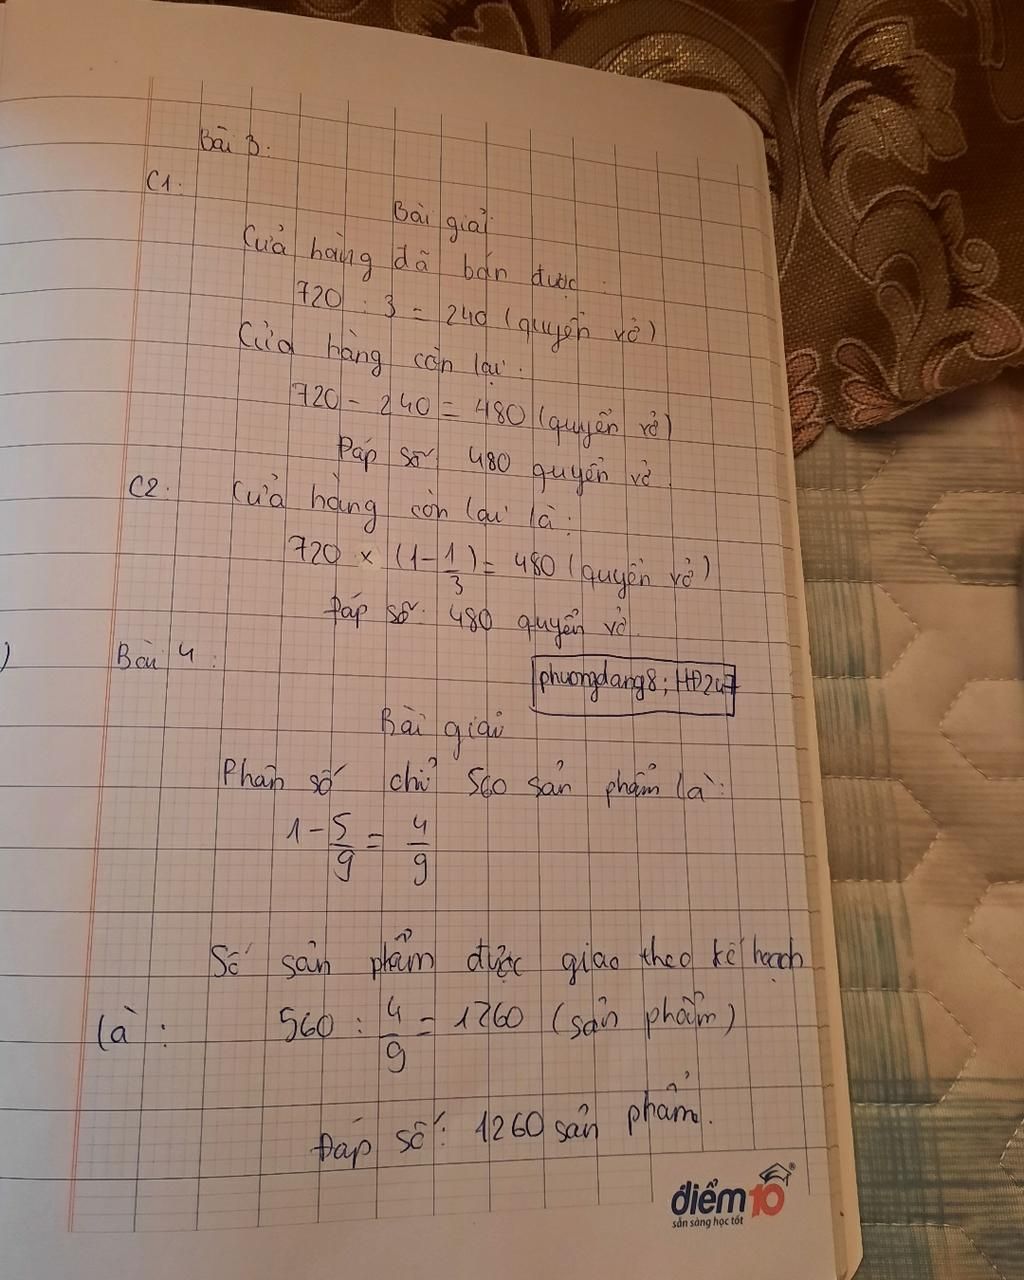 Bài 3:
C1.
Bài giải
Cửa hàng đã bán được:
720 : 3 = 240 (quyển vở)
Cửa hàng còn lại:
720 - 240 = 480 (quyển vở)
Đáp số: 480 quyển vở
C2. Cửa hàng còn lại là:
720 × (1 - 1/3) = 480 (quyển vở)
Đáp số: 480 quyển vở.
Bài 4:
phuongdang8; HĐ247
Bài giải
Phân số chỉ 560 sản phẩm là:
1 - 5/9 = 4/9
Số sản phẩm được giao theo kế hoạch
là: 560 : 4/9 = 1260 (sản phẩm)
Đáp số: 1260 sản phẩm.
điểm10
sẵn sàng học tốt